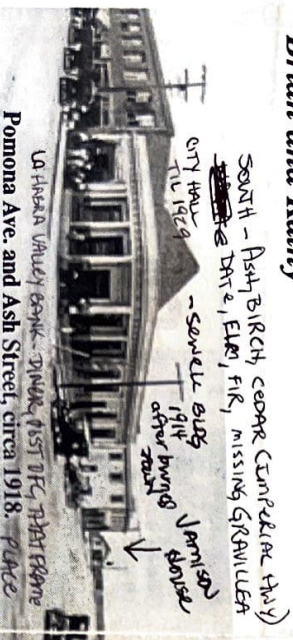 Brian and Kathy
SOUTH - ASH, BIRCH, CEDAR (IMPERIAL HWY)
DATE, ELM, FIR, MISSING GRAVILLEA
CITY HALL
TIL 1929
- SEWELL BLDG
1914
after burned
down
JAMISON
HOUSE
LA HABRA VALLEY BANK - DINER, POST OFC, THAT FRAME
PLACE
Pomona Ave. and Ash Street, circa 1918.